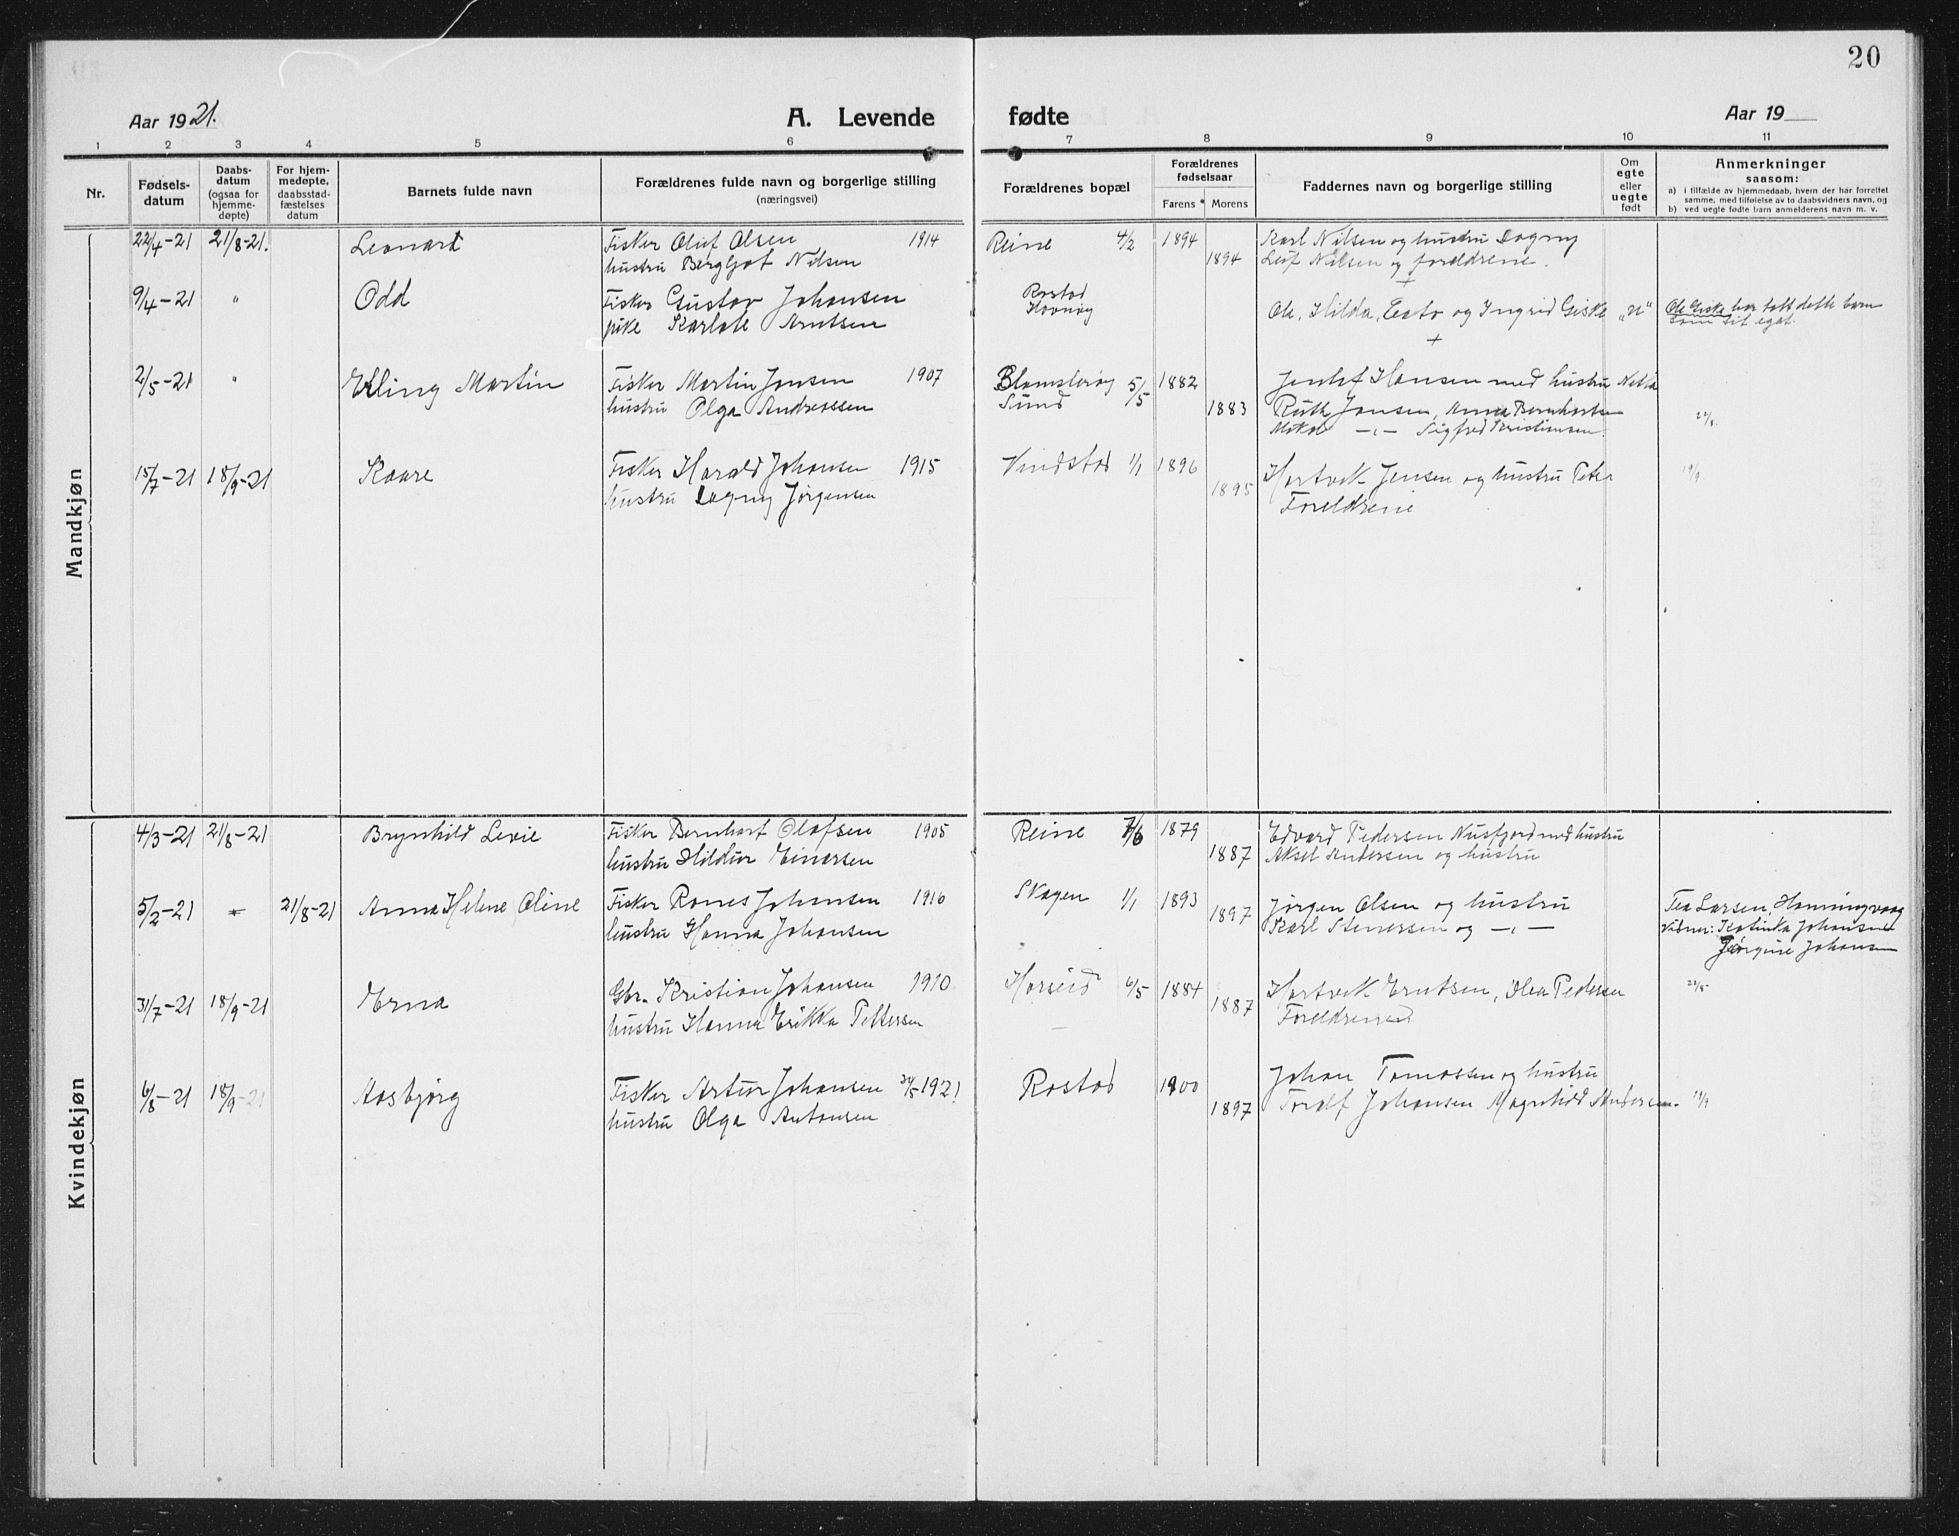 20
Aar 1921.
A. Levende
fødte
Aar 19
1 2 3 4 5 6 7 8 9 10 11
Nr.
Fødsels-
datum
Daabs-
datum
(ogsaa for
hjemme-
døpte)
For hjem-
medøpte,
daabsstad-
fæstelses
datum
Barnets fulde navn
Forældrenes fulde navn og borgerlige stilling
(næringsvei)
Forældrenes bopæl
Forældrenes
fødselsaar
Farens Morens
Faddernes navn og borgerlige stilling
Om
egte
eller
uegte
født
Anmerkninger
saasom:
a) i tilfælde av hjemmedaab, hvem der har forrettet
samme, med tilføielse av to daabsvidners navn, og
b) ved uegte fødte barn anmelderens navn m. v.
Mandkjøn
22/4-21 21/8-21. Leonart Fisker Oluf Olsen 1914 Reine 4/2 1894 Karl Nilsen og hustru Dagny
hustru Bergljot Nilsen 1894 Leif Nilsen og foreldrene.
+
9/4-21 " Odd Fisker Gustav Johansen Rostad
Havnøy Ole, Hilda, og Ingrid Giske "u" Ole Giske har tatt dette barn
som sit eget.
pike Karlote Arntsen
+
2/5-21 " Elling Martin Fisker Martin Jensen 1907 5/5 1882 Hansen med hustru Netta
hustru Olga Andreassen Sund 1883 Ruth Jensen, Anna Bernhartsen
-"- Sigfred Kristiansen. 22/8.
15/7-21 18/9-21 Kaare Fisker Harald Johansen 1915 Vindstad 1/1 1896 Hartvik Jensen og hustru Petra 19/9
hustru Dagny Jørgensen 1895 Foreldrene
Kvindekjøn
4/3-21 21/8-21 Brynhild Levie Fisker Bernhart Olafsen 1905 Reine 7/6 1879 Edvard Pedersen Nusfjord med hustru
hustru Hildur Einarsen 1887 Aksel Andersen og hustru
5/2-21 " 21/8-21 Anna Helene Oline Fisker Johansen 1916 Skagen 1/1 1893 Jørgen Olsen og hustru Tea Larsen, Honningvaag
hustru Hanna Johansen 1897 Karl Stenersen og -"- Vidner: Katinka Johansen
Jørgine Johansen
31/7-21 18/9-21 Erna Gbr. Kristian Johansen 1910 Horseid 6/5 1884 Hartvik Erntsen, Olea Pedersen
hustru Hanna Erikka Pettersen 1887 Foreldrene
6/8-21 18/9-21 Aasbjørg Fisker Artur Johansen 1921 Rostad 1900 Johan Tomassen og hustru
hustru Olga Antonsen 1897 Toralf Johansen Magnhild Andersen. 19/9